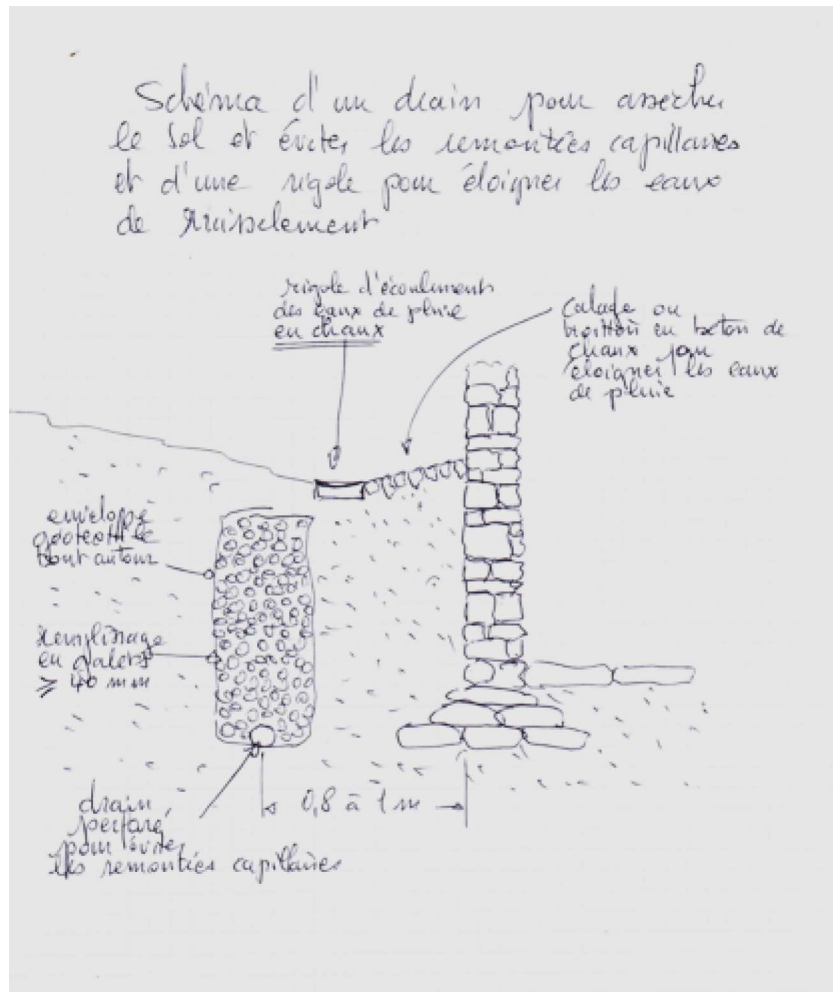 Schéma d'un drain pour assécher
le sol et éviter les remontées capillaires
et d'une rigole pour éloigner les eaux
de ruissellement
rigole d'écoulement
des eaux de pluie
en chaux
calade ou
en beton de
chaux pour
éloigner les eaux
de pluie
enveloppe
géotextile
tout autour
Remplissage
en galets
≥ 40 mm
drain
perforé
pour éviter
les remontées capillaires
0,8 à 1 m